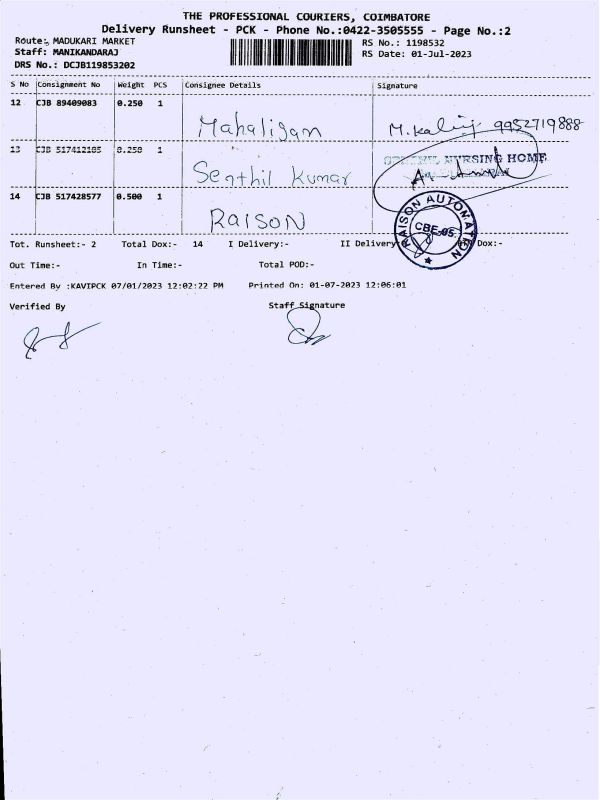 THE PROFESSIONAL COURIERS, COIMBATORE
Delivery Runsheet - PCK - Phone No.:0422-3505555 - Page No.:2
Route: MADUKARI MARKET
RS No.: 1198532
Staff: MANIKANDARAJ
RS Date: 01-Jul-2023
DRS No.: DCJB119853202
S No Consignment No Weight PCS Consignee Details Signature
12 CJB 89409083 0.250 1
Mahaligam M.kalig 9952719888
13 CJB 517412185 0.250 1
NURSING HOME
Senthil Kumar
14 CJB 517428577 0.500 1
RAISON
RAISON AUTOMATION
CBE-05.
Tot. Runsheet:- 2 Total Dox:- 14 I Delivery:- II Delivery Dox:-
Out Time:- In Time:- Total POD:-
Entered By :KAVIPCK 07/01/2023 12:02:22 PM Printed On: 01-07-2023 12:06:01
Verified By Staff Signature